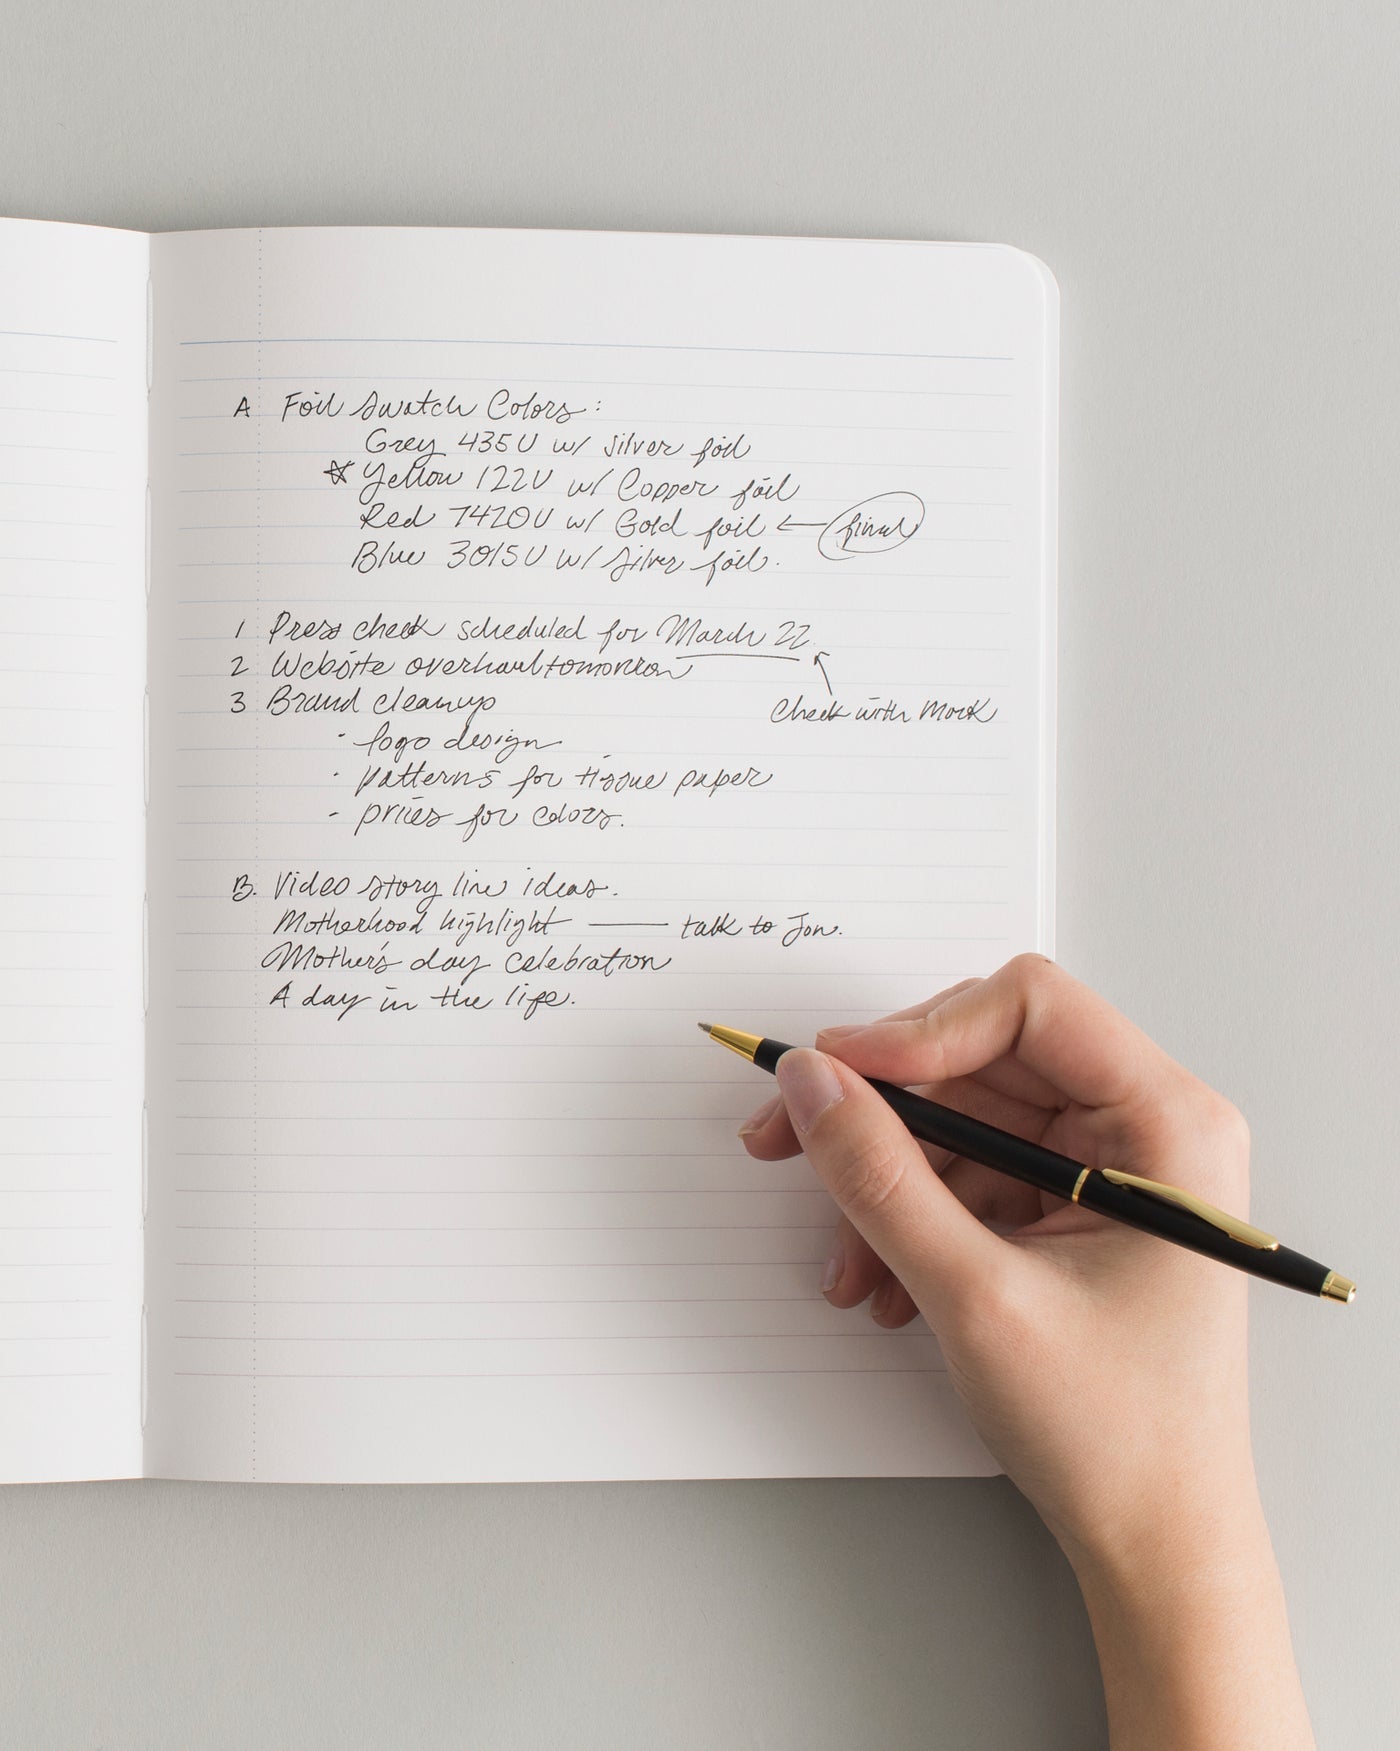 A Foil Swatch Colors:
Grey 435U w/ silver foil
☆ Yellow 122U w/ Copper foil
Red 7420U w/ Gold foil ← final
Blue 3015U w/ Silver foil.
1 Press check scheduled for March 22
2 Website overhaul tomorrow
3 Brand cleanup
Check with Mark
- logo design
- patterns for tissue paper
- prices for colors.
B. Video story line ideas.
Motherhood highlight —— talk to Jon.
Mother's day celebration
A day in the life.